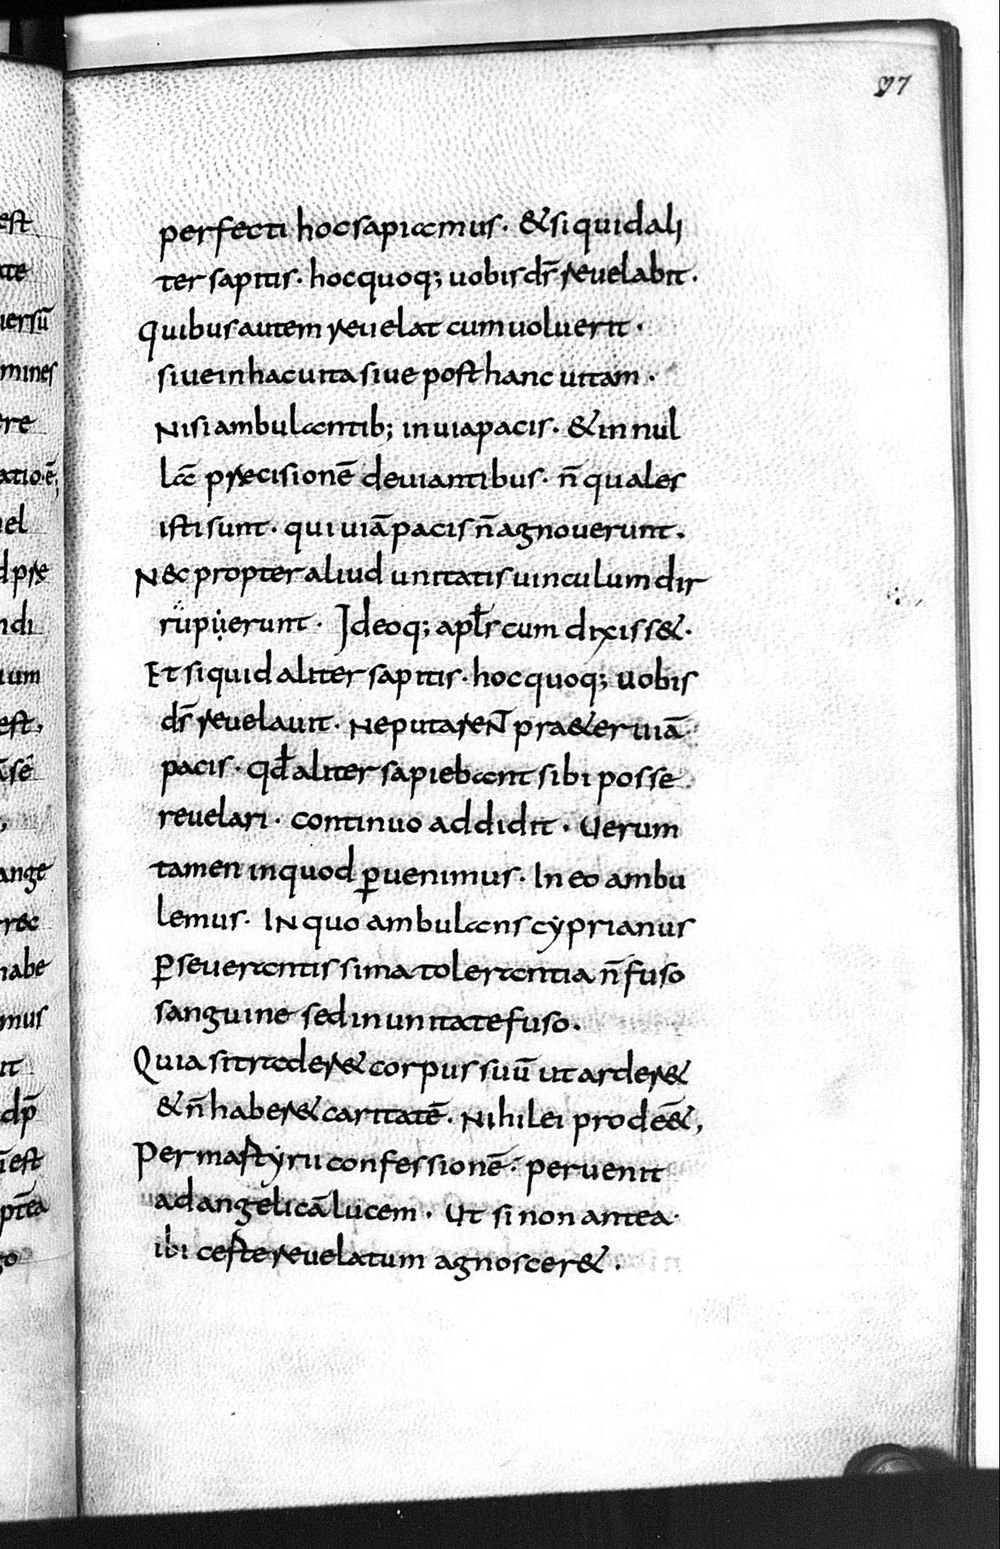 97
perfecti hoc sapiamus · & si quid ali
ter sapitis · hoc quoq; uobis d̄s reuelabit ·
quibus autem reuelat cum uoluerit ·
siue in hac uita siue post hanc uitam ·
Nisi ambulantib; in uia pacis · & in nul
lā præcisionē deuiantibus · n̄ quales
isti sunt · qui uiā pacis n̄ agnouerunt ·
Nec propter aliud unitatis uinculum dir
rupuerunt · Ideoq; apl̄s cum dixiss& ·
Et si quid aliter sapitis · hoc quoq; uobis
d̄s reuelauit · Ne putaren̄ pra&er uiā
pacis · qđ aliter sapiebant sibi posse
reuelari · continuo addidit · Uerum
tamen in quod ꝑuenimus · In eo ambu
lemus · IN quo ambulans cyprianus
ꝑseuerantissima tolerantia n̄ fuso
sanguine sed in unitate fuso ·
Quia si trader& corpus suū ut arder&
& n̄ haber& caritatē · Nihil ei prodē&,
Per martyrii confessionē · peruenit
ad angelicā lucem · Ut si non antea ·
ibi certe reuelatum agnoscer& ·
est
ate
uersū
mines
ere
atio · ē;
uel
dpræ
ndi
ium
est,
āsē
ange
nec
habe
mus
it
dp̄
ē est
ptēa
go